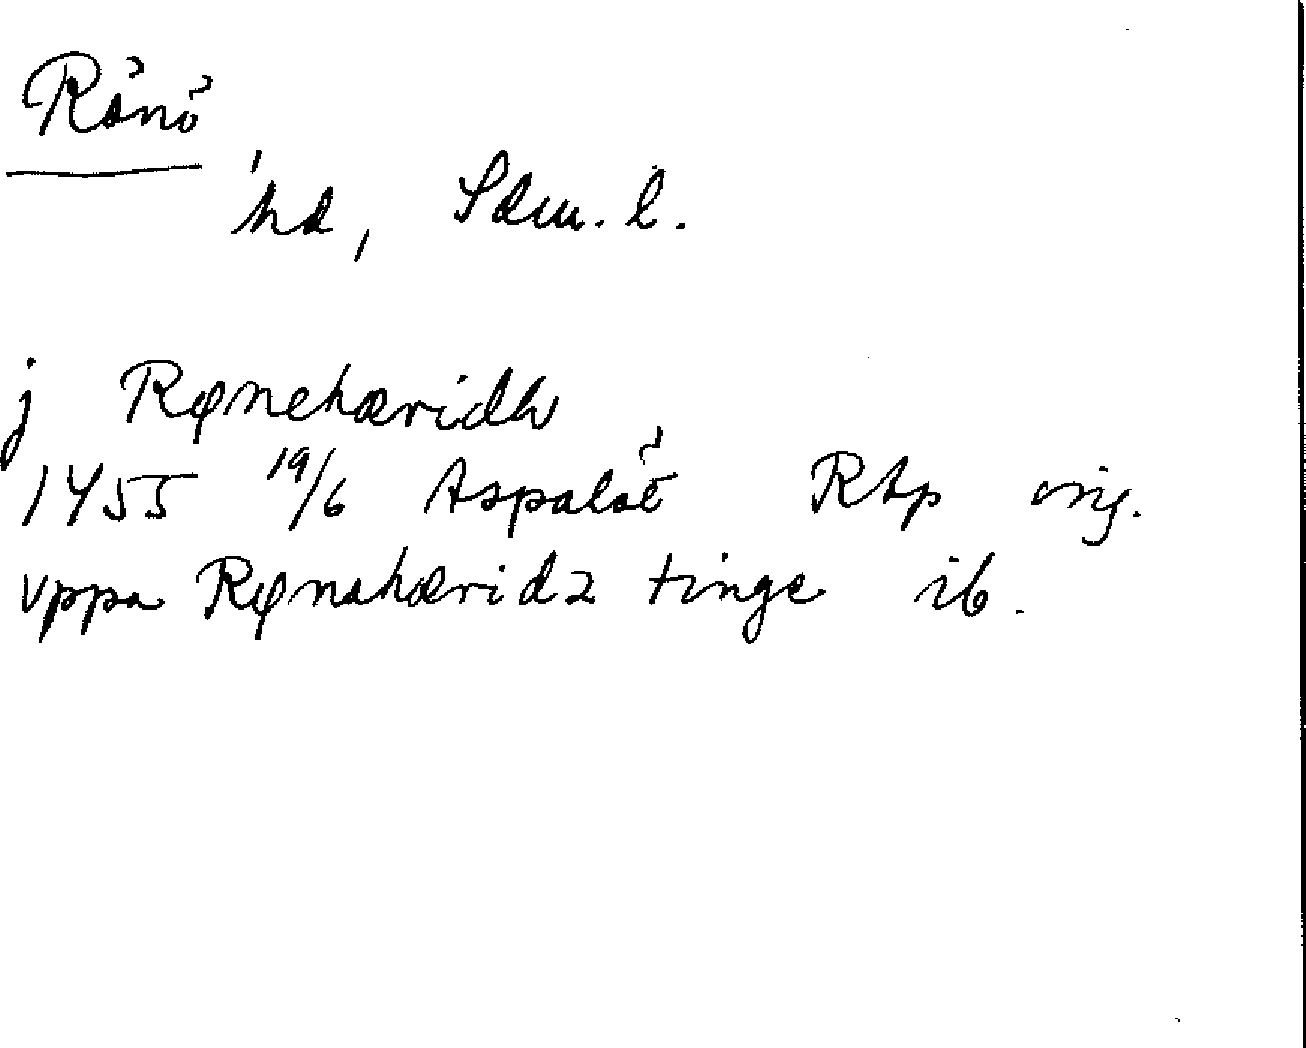 Rönö
hd, Sdm. l.
j Rønehæridh
1455 19/6 Aspalöt RAp orig.
vppa Rønahæridz tinge ib.